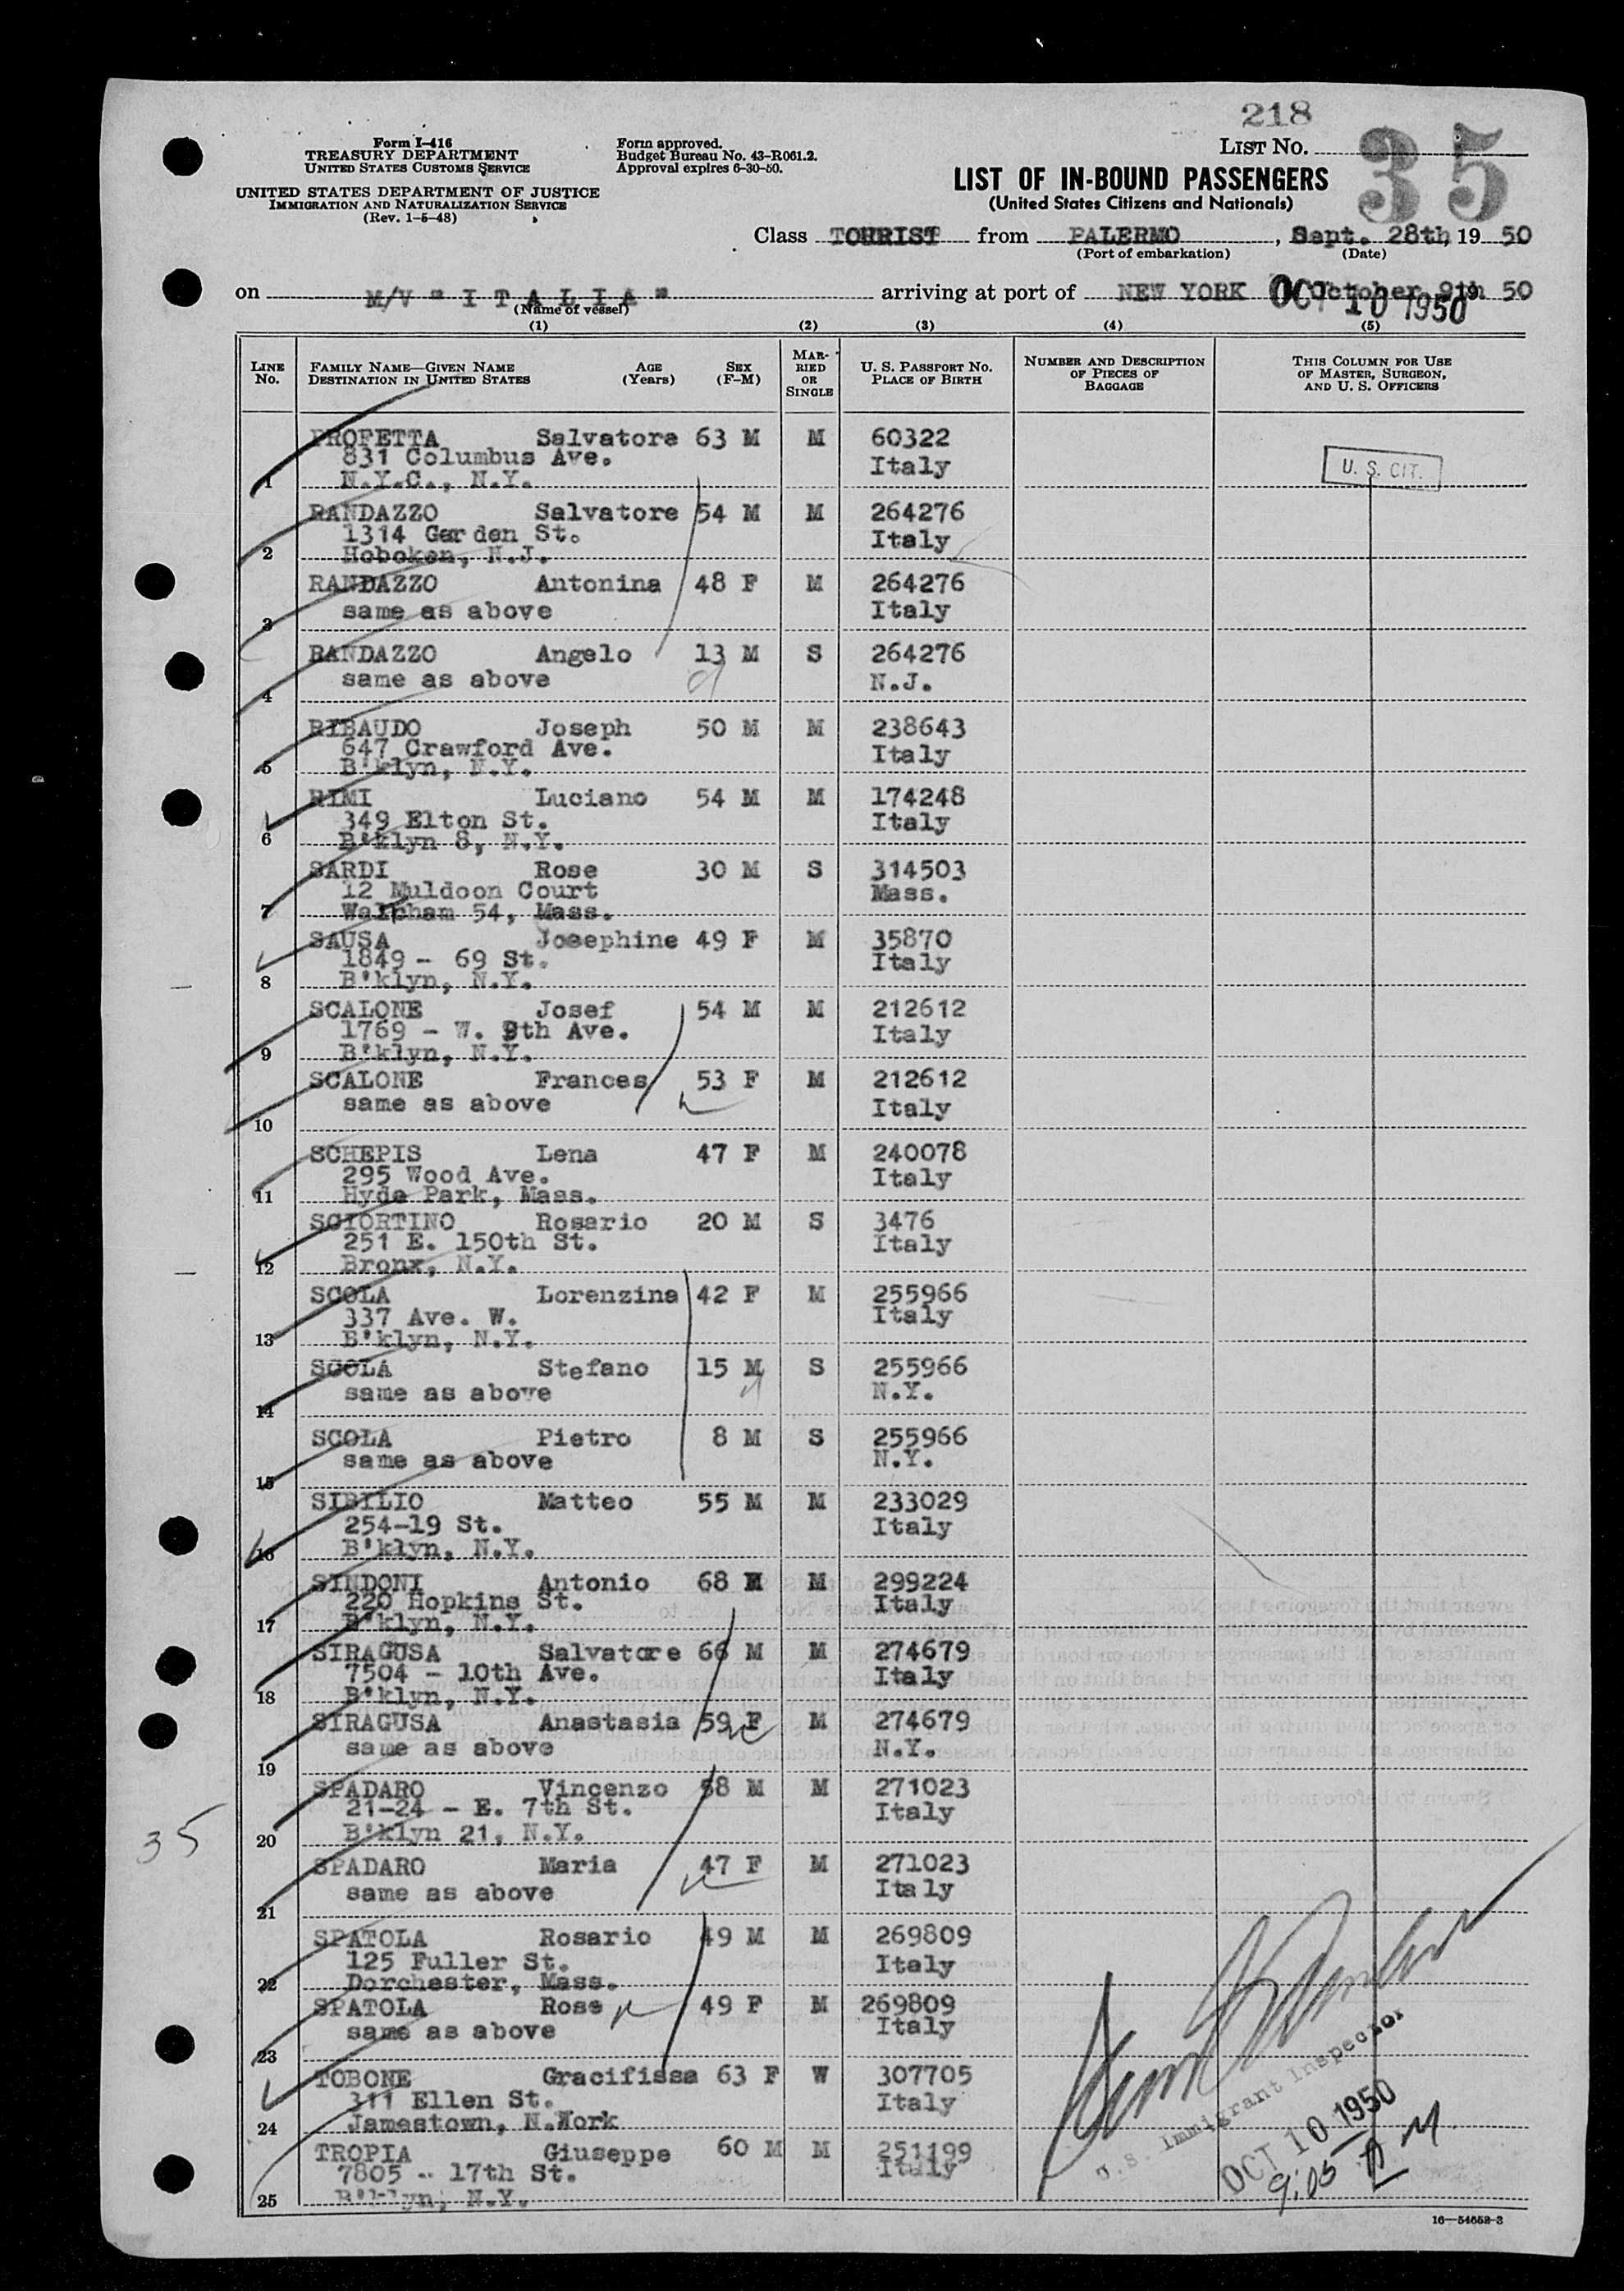 218
Form I-416
TREASURY DEPARTMENT
UNITED STATES CUSTOMS SERVICE
Form approved.
Budget Bureau No. 43-R061.2.
Approval expires 6-30-50.
LIST NO. 35
UNITED STATES DEPARTMENT OF JUSTICE
IMMIGRATION AND NATURALIZATION SERVICE
(Rev. 1-5-48)
LIST OF IN-BOUND PASSENGERS
(United States Citizens and Nationals)
Class TOURIST from PALERMO, Sept. 28th, 19 50
(Port of embarkation) (Date)
on M/V "I T A L I A" arriving at port of NEW YORK October 9th 50
OCT 10 1950
(Name of vessel)
(1) (2) (3) (4) (5)
LINE NO. FAMILY NAME—GIVEN NAME DESTINATION IN UNITED STATES AGE (Years) SEX (F-M) MARRIED OR SINGLE U. S. PASSPORT NO. PLACE OF BIRTH NUMBER AND DESCRIPTION OF PIECES OF BAGGAGE THIS COLUMN FOR USE OF MASTER, SURGEON, AND U. S. OFFICERS
PROFETTA Salvatore 63 M M 60322
831 Columbus Ave. Italy U. S. CIT.
1 N.Y.C., N.Y.
RANDAZZO Salvatore 54 M M 264276
1314 Garden St. Italy
2 Hoboken, N.J.
RANDAZZO Antonina 48 F M 264276
same as above Italy
3
RANDAZZO Angelo 13 M S 264276
same as above N.J.
4
RIBAUDO Joseph 50 M M 238643
647 Crawford Ave. Italy
5 B'klyn, N.Y.
RIMI Luciano 54 M M 174248
349 Elton St. Italy
6 B'klyn 8, N.Y.
SARDI Rose 30 M S 314503
12 Muldoon Court Mass.
7 Waltham 54, Mass.
SAUSA Josephine 49 F M 35870
1849 - 69 St. Italy
8 B'klyn, N.Y.
SCALONE Josef 54 M M 212612
1769 - W. 9th Ave. Italy
9 B'klyn, N.Y.
SCALONE Frances 53 F M 212612
same as above Italy
10
SCHEPIS Lena 47 F M 240078
295 Wood Ave. Italy
11 Hyde Park, Mass.
SCIORTINO Rosario 20 M S 3476
251 E. 150th St. Italy
12 Bronx, N.Y.
SCOLA Lorenzina 42 F M 255966
337 Ave. W. Italy
13 B'klyn, N.Y.
SCOLA Stefano 15 M S 255966
same as above N.Y.
14
SCOLA Pietro 8 M S 255966
same as above N.Y.
15
SIBILIO Matteo 55 M M 233029
254-19 St. Italy
16 B'klyn, N.Y.
SINDONI Antonio 68 M M 299224
220 Hopkins St. Italy
17 B'klyn, N.Y.
SIRAGUSA Salvatore 66 M M 274679
7504 - 10th Ave. Italy
18 B'klyn, N.Y.
SIRAGUSA Anastasia 59 F M 274679
same as above N.Y.
19
SPADARO Vincenzo 58 M M 271023
21-24 - E. 7th St. Italy
20 B'klyn 21, N.Y.
35
SPADARO Maria 47 F M 271023
same as above Italy
21
SPATOLA Rosario 49 M M 269809
125 Fuller St. Italy
22 Dorchester, Mass.
SPATOLA Rose 49 F M 269809
same as above Italy
23
TOBONE Gracifissa 63 F W 307705
311 Ellen St. Italy
24 Jamestown, N.York
TROPIA Giuseppe 60 M M 251199
7805 - 17th St. Italy
25 B'klyn, N.Y.
U.S. Immigrant Inspector
OCT 10 1950
9:05 A M
16-54652-3